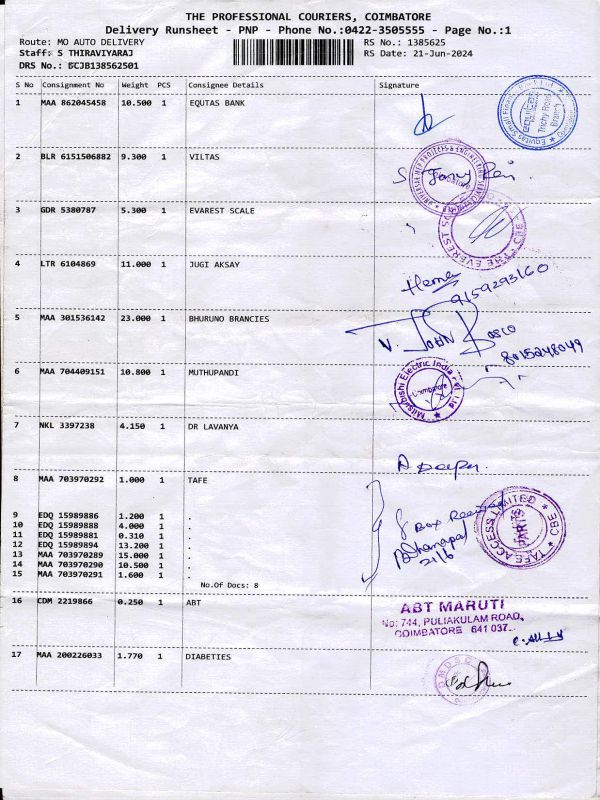 THE PROFESSIONAL COURIERS, COIMBATORE
Delivery Runsheet - PNP - Phone No.:0422-3505555 - Page No.:1
Route: MO AUTO DELIVERY RS No.: 1385625
Staff: S THIRAVIYARAJ RS Date: 21-Jun-2024
DRS No.: BCJB138562501
S No Consignment No Weight PCS Consignee Details Signature
1 MAA 862045458 10.500 1 EQUTAS BANK
Equitas Small Finance Bank Ltd
Trichy Road
Branch
2 BLR 6151506882 9.300 1 VILTAS
3 GDR 5380787 5.300 1 EVAREST SCALE
THE EVEREST
CBE
4 LTR 6104869 11.000 1 JUGI AKSAY
Hema
9159293160
5 MAA 301536142 23.000 1 BHURUNO BRANCIES
V. JOHN BOSCO
8015248049
6 MAA 704409151 10.800 1 MUTHUPANDI
Mitsubishi Electric India Pvt Ltd
Coimbatore
7 NKL 3397238 4.150 1 DR LAVANYA
A Deepa
8 MAA 703970292 1.000 1 TAFE
9 EDQ 15989886 1.200 1 .
10 EDQ 15989888 4.000 1 .
11 EDQ 15989881 0.310 1 .
12 EDQ 15989894 13.200 1 .
13 MAA 703970289 15.000 1 .
14 MAA 703970290 10.500 1 .
15 MAA 703970291 1.600 1 .
No.Of Docs: 8
8 Box Received
Dhanapal
21/6
TAFE ACCESS LIMITED CBE
PARTS
16 CDM 2219866 0.250 1 ABT
ABT MARUTI
No: 744, PULIAKULAM ROAD,
COIMBATORE 641 037.
17 MAA 200226033 1.770 1 DIABETIES